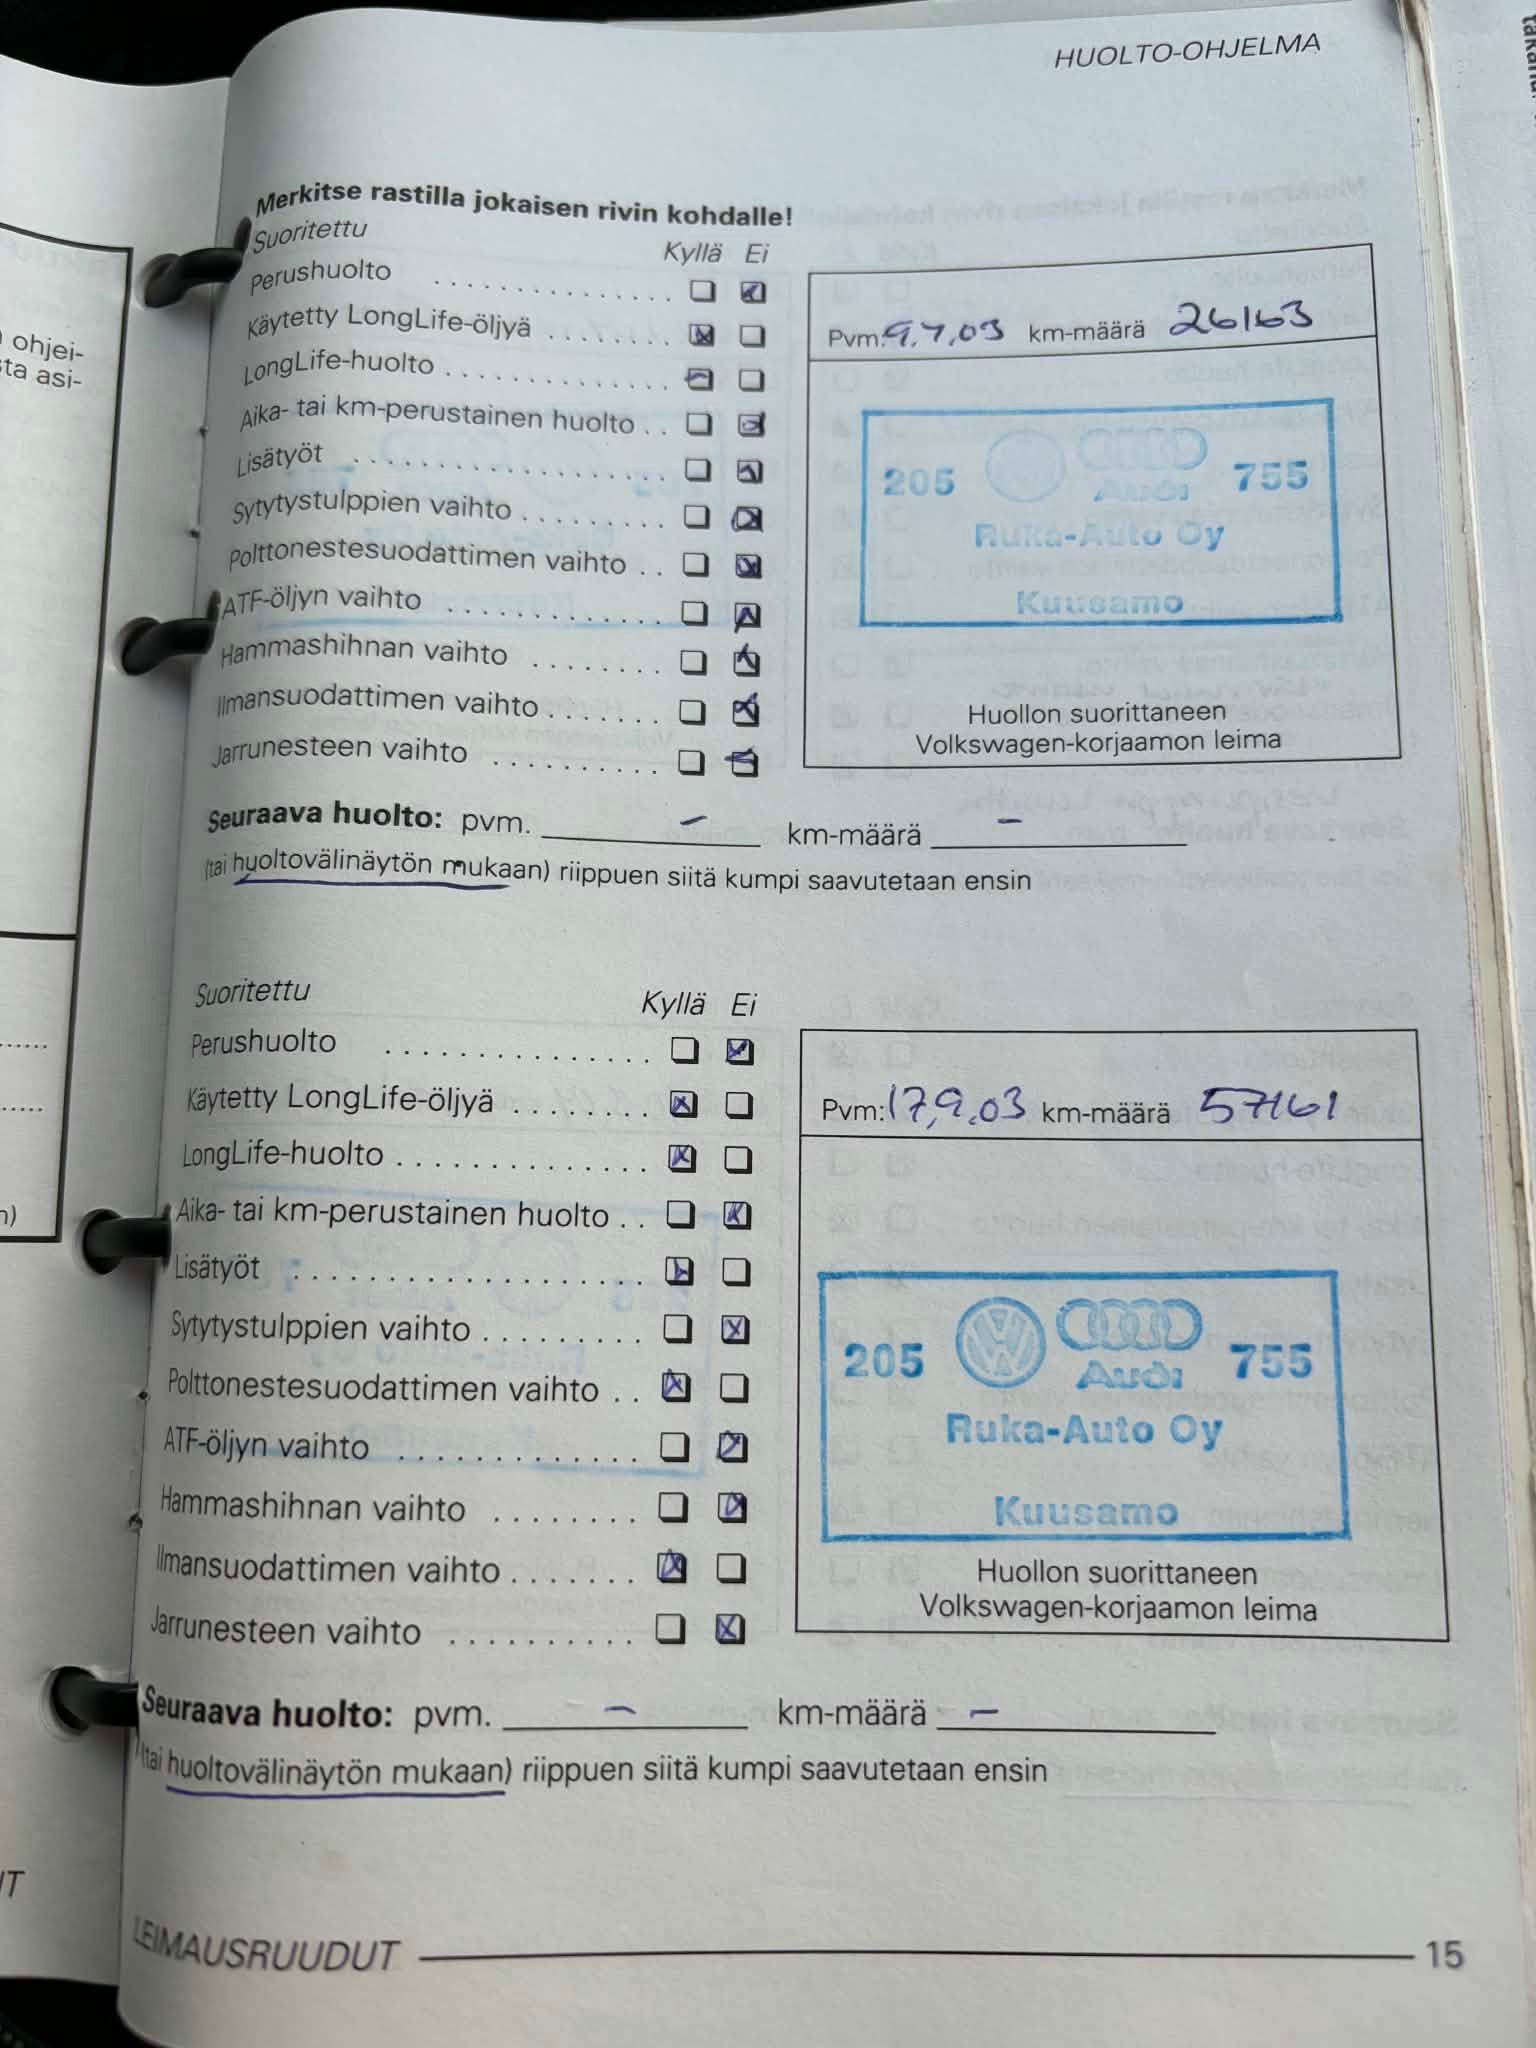 HUOLTO-OHJELMA
ohjei-
sta asi-
Merkitse rastilla jokaisen rivin kohdalle!
Suoritettu Kyllä Ei
Perushuolto
Käytetty LongLife-öljyä
LongLife-huolto
Aika- tai km-perustainen huolto
Lisätyöt
Sytytystulppien vaihto
Polttonestesuodattimen vaihto
ATF-öljyn vaihto
Hammashihnan vaihto
Ilmansuodattimen vaihto
Jarrunesteen vaihto
Pvm: km-määrä 26163
205 Audi 755
Ruka-Auto Oy
Kuusamo
Huollon suorittaneen
Volkswagen-korjaamon leima
Seuraava huolto: pvm. – km-määrä –
(tai huoltovälinäytön mukaan) riippuen siitä kumpi saavutetaan ensin
Suoritettu Kyllä Ei
Perushuolto
Käytetty LongLife-öljyä
LongLife-huolto
Aika- tai km-perustainen huolto
Lisätyöt
Sytytystulppien vaihto
Polttonestesuodattimen vaihto
ATF-öljyn vaihto
Hammashihnan vaihto
Ilmansuodattimen vaihto
Jarrunesteen vaihto
Pvm: 17.9.03 km-määrä 57161
205 VW Audi 755
Ruka-Auto Oy
Kuusamo
Huollon suorittaneen
Volkswagen-korjaamon leima
Seuraava huolto: pvm. – km-määrä –
(tai huoltovälinäytön mukaan) riippuen siitä kumpi saavutetaan ensin
LEIMAUSRUUDUT 15